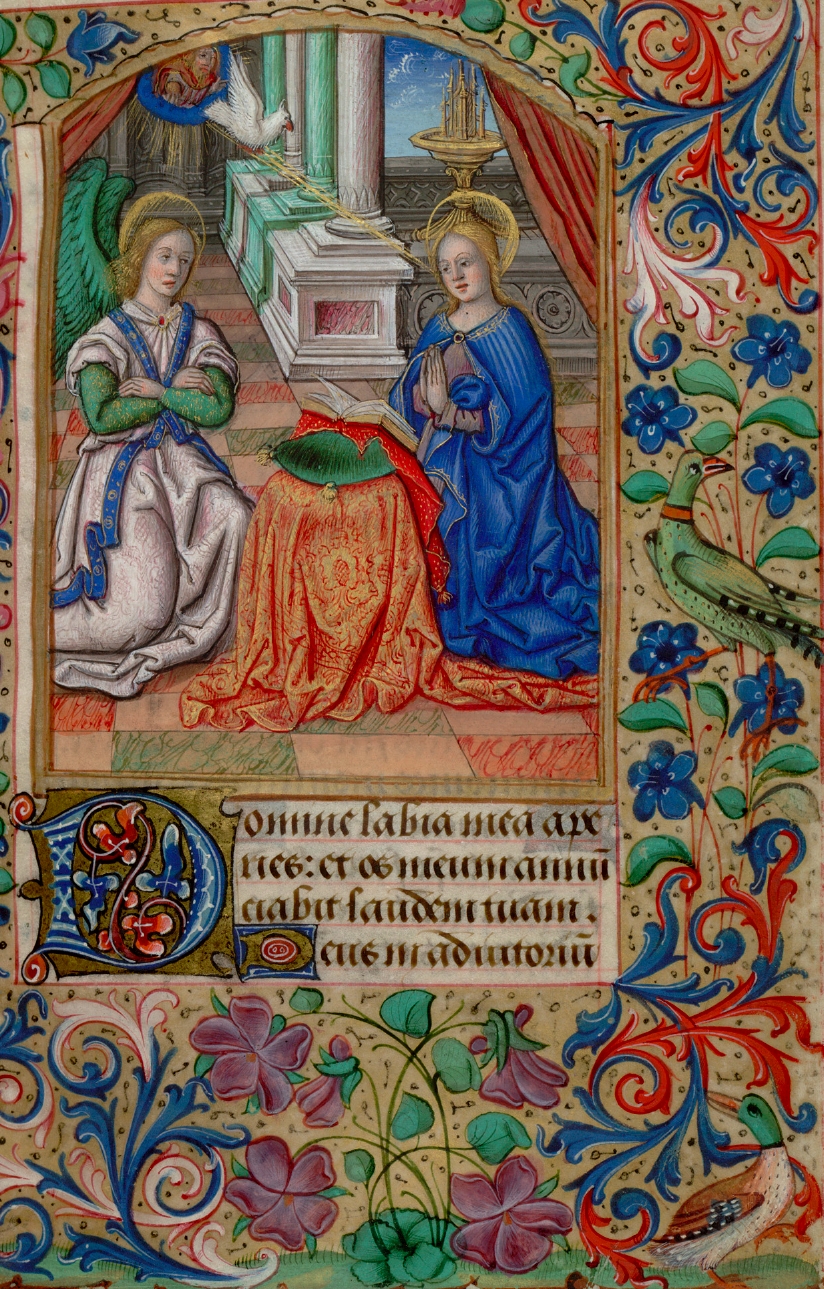 Domine labia mea ape
ries: et os meum annū
ciabit laudem tuam.
Deus in adiutoriū